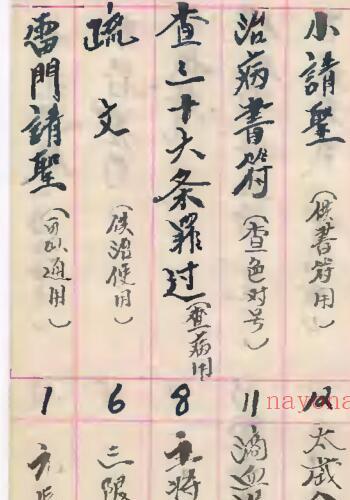 小請聖(供書符用)
治病書符(查色对号)
查三十大条罪过(查病用
疏文(供治使用)
雷門請聖(可以通用)
12 11 8 6 1
太歲
滴血
王将
三限
nayona